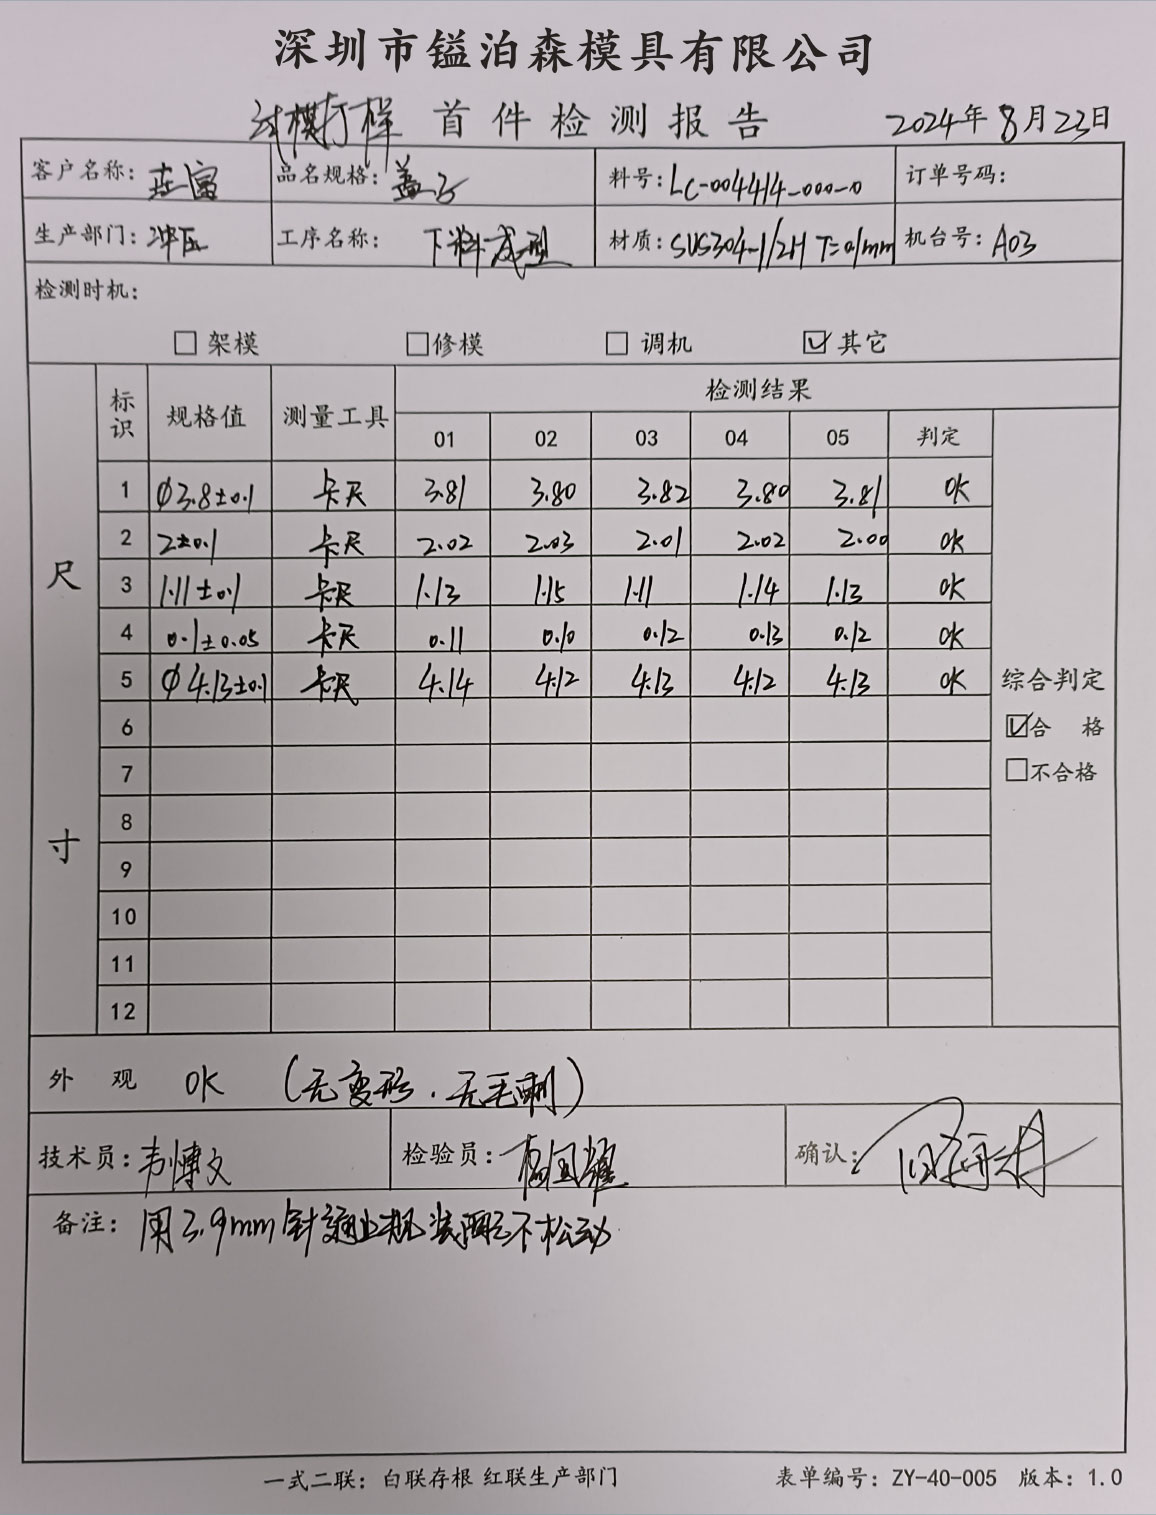 深圳市镒泊森模具有限公司
试模打样 首件检测报告 2024年8月23日
客户名称: 品名规格: 盖子 料号: LC-004414-000-0 订单号码:
生产部门: 冲压 工序名称: 下料成型 材质: SUS304-1/2H T=0.1mm 机台号: A03
检测时机:
□ 架模 □修模 □ 调机 ☑ 其它
标识 规格值 测量工具 检测结果
01 02 03 04 05 判定
尺寸
1 Φ3.8±0.1 卡尺 3.81 3.80 3.82 3.80 3.81 OK
2 2±0.1 卡尺 2.02 2.03 2.01 2.02 2.00 OK
3 1.11±0.1 卡尺 1.13 1.15 1.11 1.14 1.13 OK
4 0.1±0.05 卡尺 0.11 0.10 0.12 0.13 0.12 OK
5 Φ4.13±0.1 卡尺 4.14 4.12 4.13 4.12 4.13 OK
6
7
8
9
10
11
12
综合判定
☑合 格
□不合格
外 观 OK (无变形.无毛刺)
技术员: 韦博文 检验员: 确认:
备注: 用3.9mm针通止规 不松动
一式二联: 白联存根 红联生产部门 表单编号: ZY-40-005 版本: 1.0